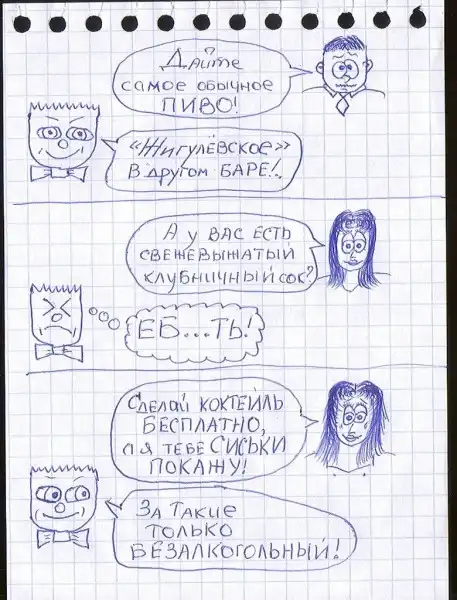 Дайте
самое обычное
ПИВО!
«Жигулёвское»
в другом БАРЕ!
А у ВАС ЕСТЬ
СВЕЖЕВЫЖАТЫЙ
КЛУБНИЧНЫЙ СОК?
ЕБ...ТЬ!
Сделай коктейль
БЕСПЛАТНО,
а я тебе СИСЬКИ
ПОКАЖУ!
ЗА ТАКИЕ
ТОЛЬКО
БЕЗАЛКОГОЛЬНЫЙ!